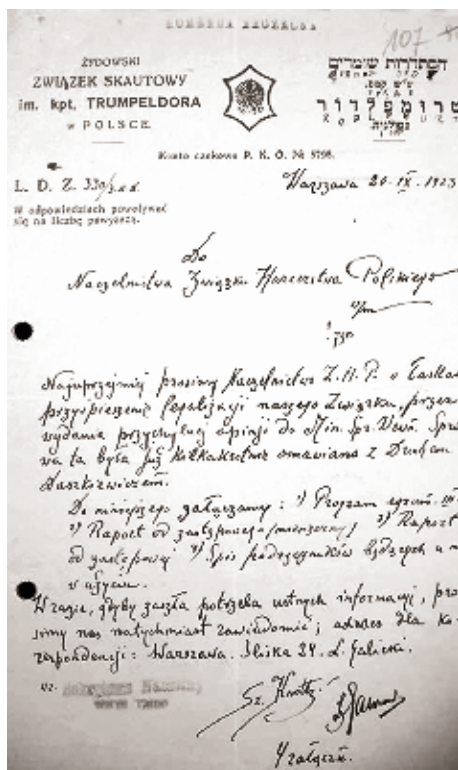 KOMENDA NACZELNA
107
ŻYDOWSKI
ZWIĄZEK SKAUTOWY
im. kpt. TRUMPELDORA
w POLSCE.
הסתדרות שומרים
ע"ש קפט.
טרומפלדור
בפולניה.
Konto czekowe P. K. O. № 5798.
L. D. Z. 330/
W odpowiedziach powoływać
się na liczbę powyższą.
Warszawa 26. IX. 1923
Do
Naczelnictwa Związku Harcerstwa Polskiego
w/m
Najuprzejmiej prosimy Naczelnictwo Z. H. P. o łaskaw
przyspieszenie legalizacji naszego Związku, przez
wydanie przychylnej opinji do Min. Spr. Wewn. Spra
wa ta była już kilkakrotnie omawiana z Druhem
Do niniejszego załączamy: 1) Program
2) Raport od zastępowego /miesięczny/ 3) Raport
od zastępowej 4) Spis podręczników będących u n
w użyciu.
W razie, gdyby zaszła potrzeba ustnych informacji, pro
simy nas natychmiast zawiadomić; adres dla ko
respondencji: Warszawa. Śliska 24. L. Galicki.
4 załączn.